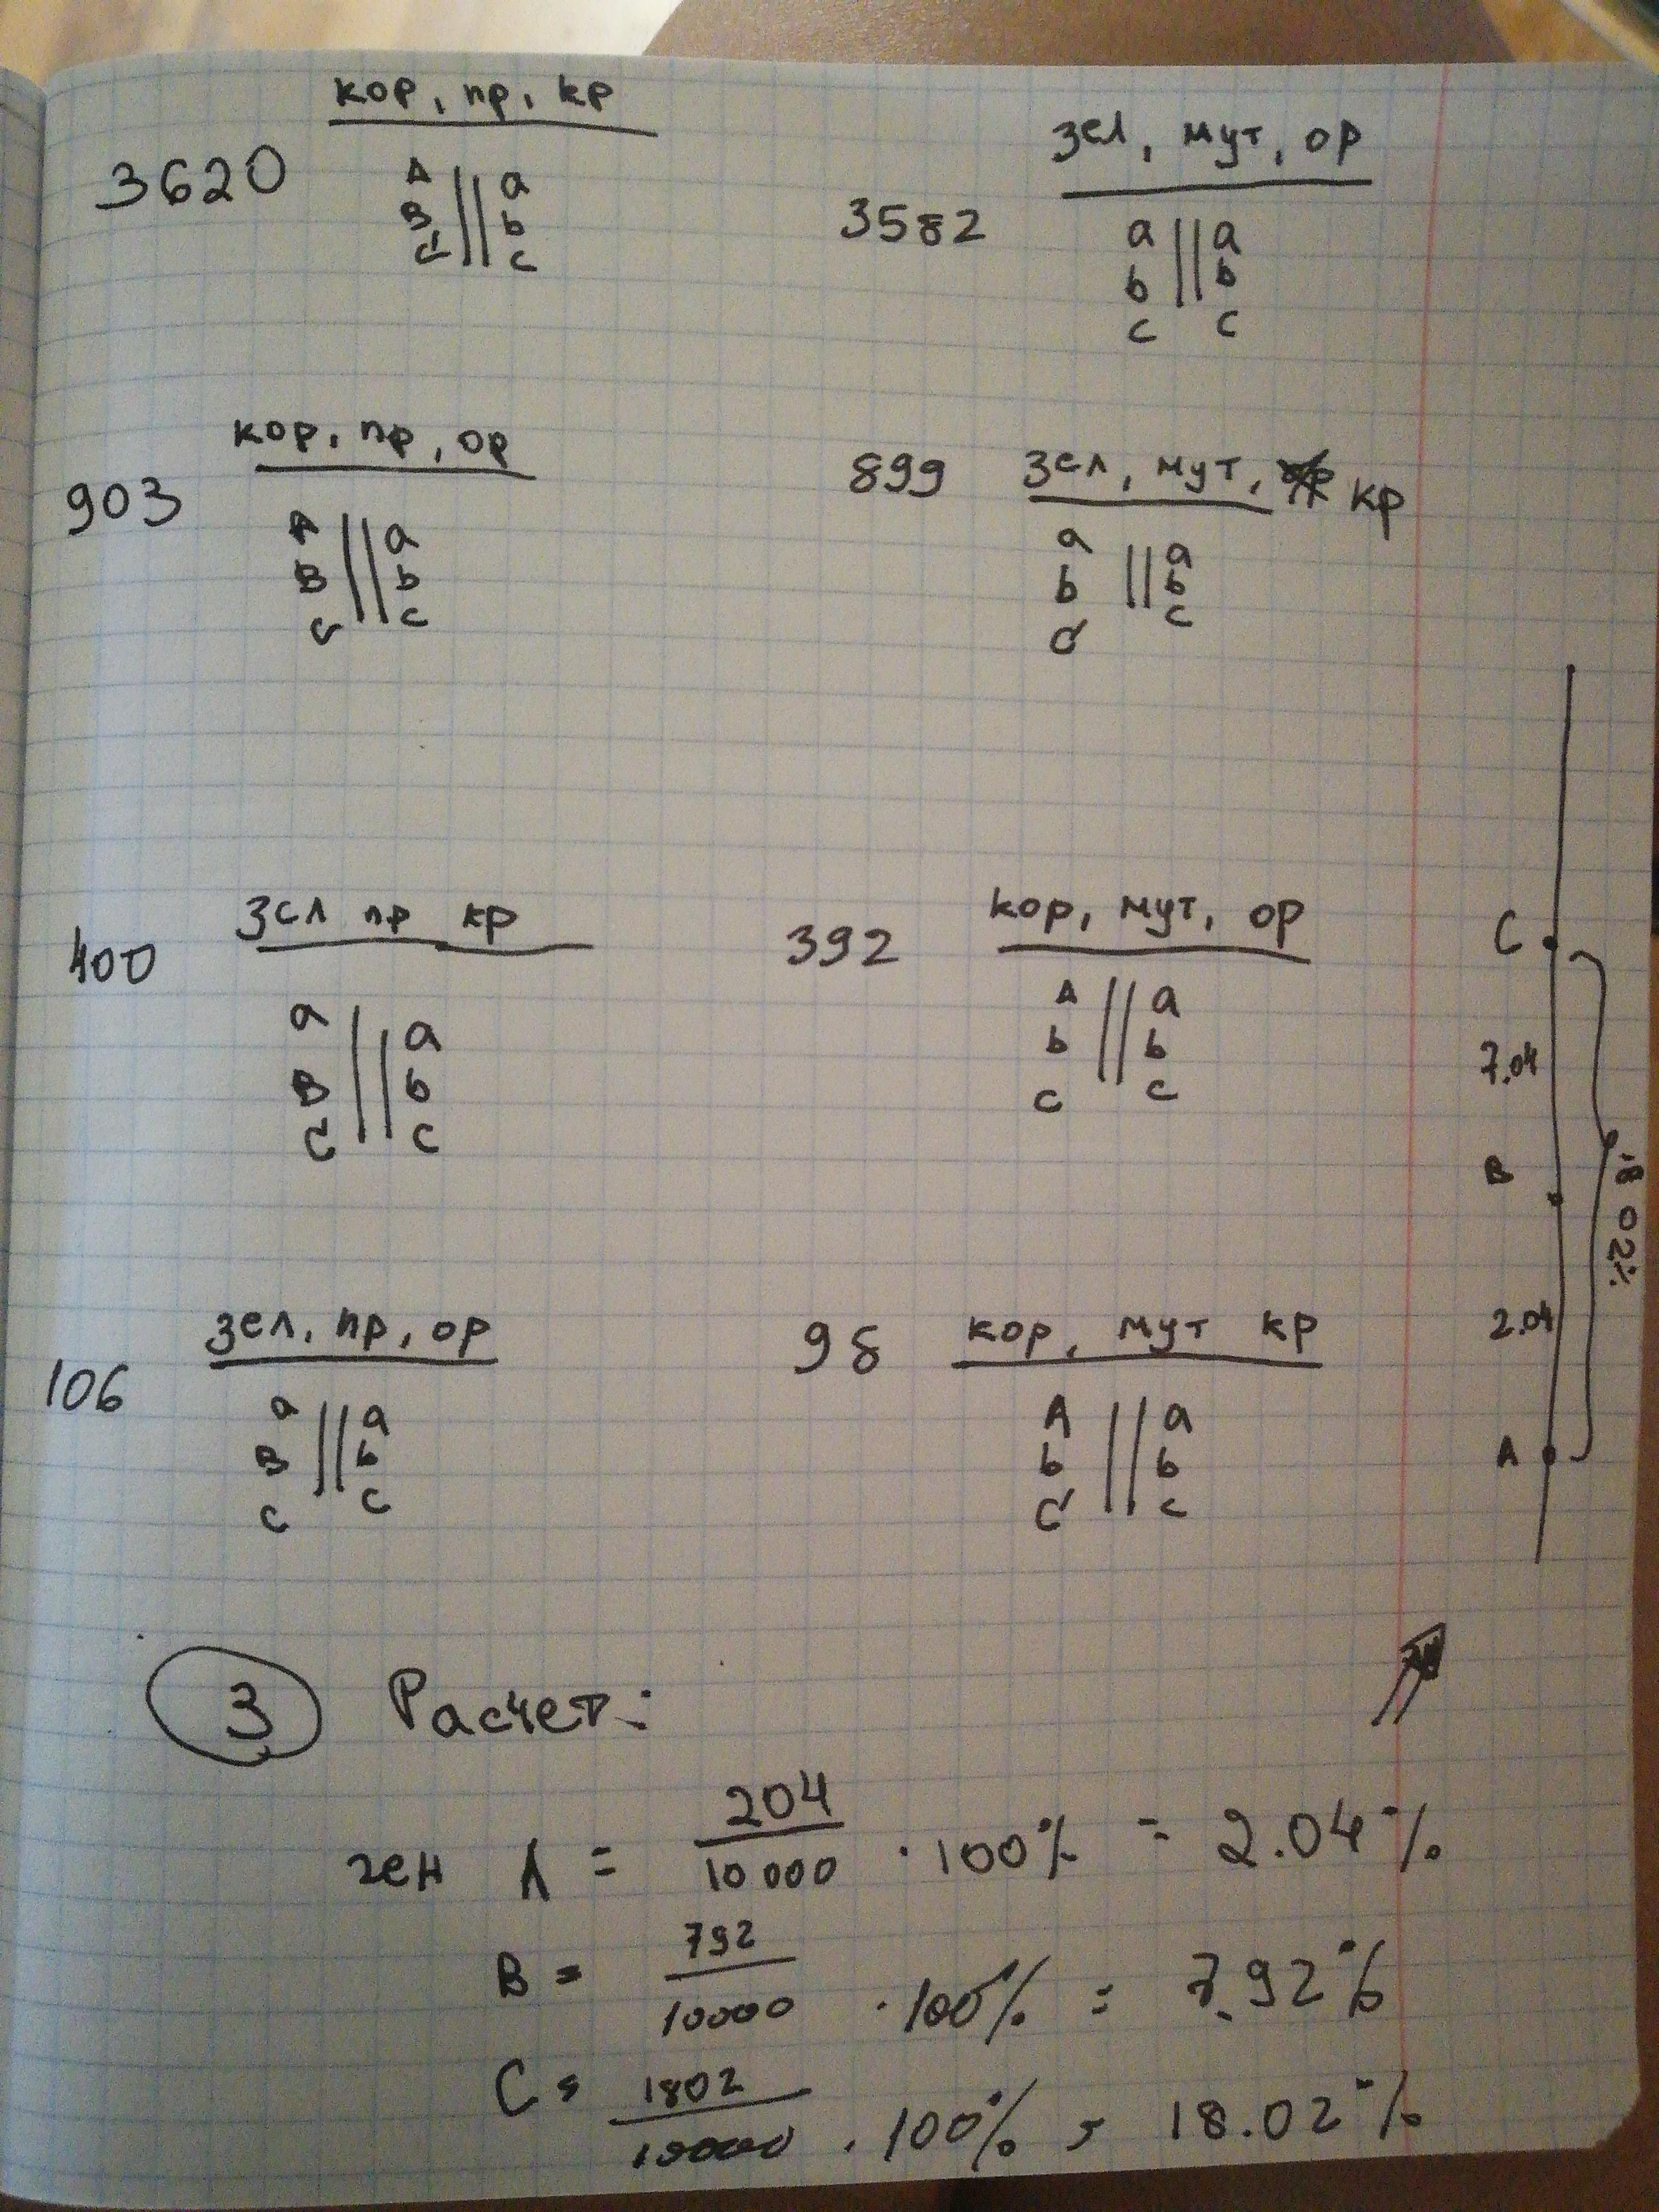 кор, пр, кр
3620
A || a
B b
C c
зел, мут, ор
3582
a || a
b b
c c
кор, пр, ор
903
A || a
B b
c c
899 зел, мут, кр
a || a
b b
C c
зел пр кр
400
a || a
B b
C c
кор, мут, ор
392
A || a
b b
c c
зел, пр, ор
106
a || a
B b
c c
98 кор, мут кр
A || a
b b
C c
C
7.04
B
2.04
A
18 02%
3 Расчет:
ген A = 204/10 000 · 100% = 2.04%
B = 792/10000 · 100% = 7.92%
C = 1802/10000 · 100% = 18.02%